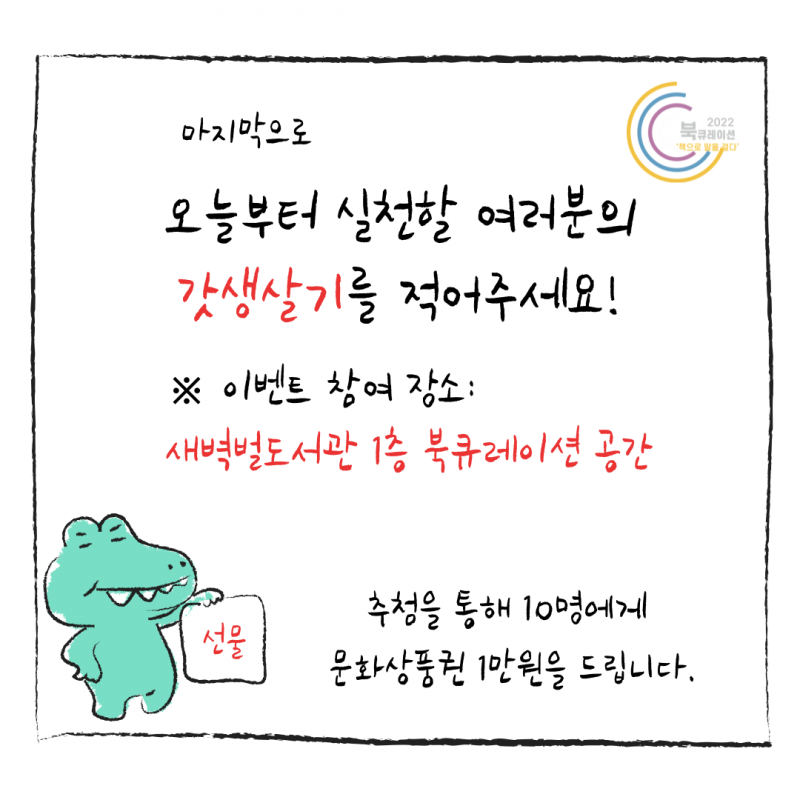 마지막으로
2022
북큐레이션
'책으로 말을 걸다'
오늘부터 실천할 여러분의
갓생살기를 적어주세요!
※ 이벤트 참여 장소:
새벽벌도서관 1층 북큐레이션 공간
선물
추첨을 통해 10명에게
문화상품권 1만원을 드립니다.